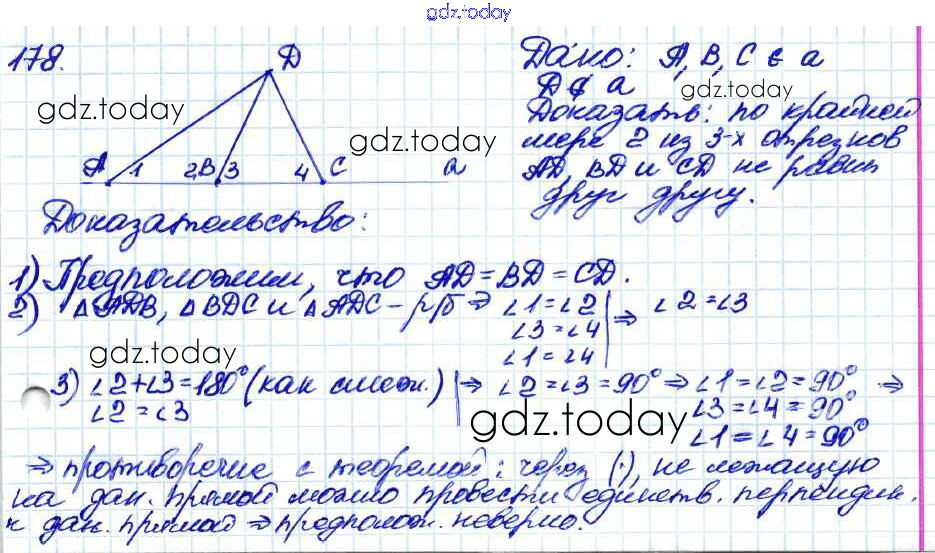 gdz.today
178.
D
gdz.today
gdz.today
A 1 2 B 3 4 C a
Дано: A, B, C ∈ a
D ∉ a
gdz.today
Доказать: по крайней
мере 2 из 3-х отрезков
AD, BD и CD не равны
друг другу.
Доказательство:
1) Предположим, что AD = BD = CD.
2) △ADB, △BDC и △ADC – р/б ⇒ ∠1 = ∠2
∠3 = ∠4
∠1 = ∠4
⇒ ∠2 = ∠3
gdz.today
3) ∠2 + ∠3 = 180° (как смежн.)
∠2 = ∠3
⇒ ∠2 = ∠3 = 90° ⇒ ∠1 = ∠2 = 90°
∠3 = ∠4 = 90°
∠1 = ∠4 = 90°
⇒
gdz.today
⇒ противоречие с теоремой: через (·), не лежащую
на дан. прямой можно провести единств. перпендик.
к дан. прямой ⇒ предполож. неверно.